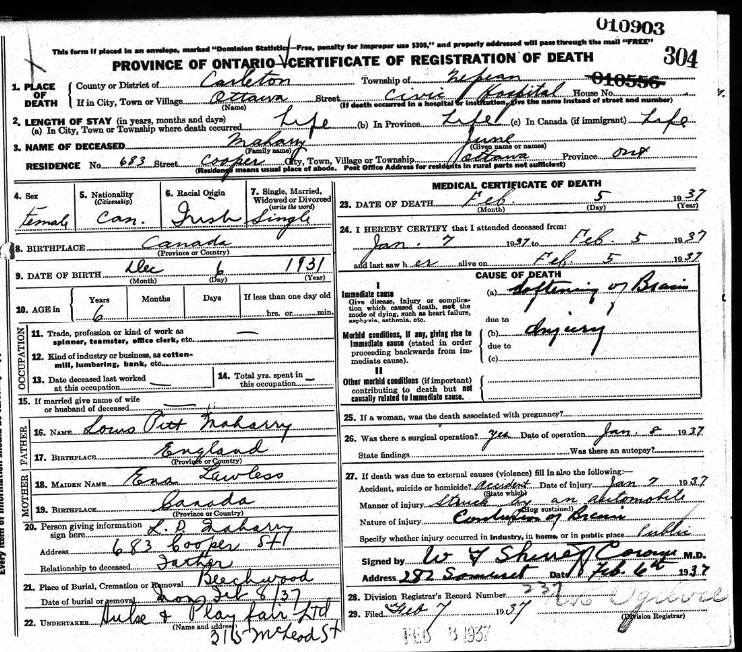 010903
This form if placed in an envelope, marked "Dominion Statistics—Free, penalty for improper use $300," and properly addressed will pass through the mail "FREE"
PROVINCE OF ONTARIO—CERTIFICATE OF REGISTRATION OF DEATH 304
010556
1. PLACE OF DEATH County or District of Carleton Township of Nepean
If in City, Town or Village Ottawa (Name) Street Civic Hospital House No.
(If death occurred in a hospital or institution, give the name instead of street and number)
2. LENGTH OF STAY (in years, months and days)
(a) In City, Town or Township where death occurred Life (b) In Province Life (c) In Canada (if immigrant) Life
3. NAME OF DECEASED Maharry (Family name) June (Given name or names)
RESIDENCE No. 683 Street Cooper City, Town, Village or Township Ottawa Province Ont
(Residence means usual place of abode. Post Office Address for residents in rural parts not sufficient)
4. Sex Female
5. Nationality (Citizenship) Can.
6. Racial Origin Irish
7. Single, Married, Widowed or Divorced (write the word) Single
8. BIRTHPLACE Canada (Province or Country)
9. DATE OF BIRTH Dec (Month) 6 (Day) 1931 (Year)
10. AGE in Years 6 Months Days If less than one day old hrs. or min.
OCCUPATION
11. Trade, profession or kind of work as spinner, teamster, office clerk, etc. —
12. Kind of industry or business, as cotton-mill, lumbering, bank, etc. —
13. Date deceased last worked at this occupation —
14. Total yrs. spent in this occupation —
15. If married give name of wife or husband of deceased
FATHER
16. NAME Louis Pitt Maharry
17. BIRTHPLACE England (Province or Country)
MOTHER
18. MAIDEN NAME Ena Lawless
19. BIRTHPLACE Canada (Province or Country)
20. Person giving information sign here L. P. Maharry
Address 683 Cooper St
Relationship to deceased Father
21. Place of Burial, Cremation or Removal Beechwood
Date of burial or removal Mon Feb 8/37
22. UNDERTAKER Hulse & Playfair Ltd
(Name and address) 315 McLeod St
MEDICAL CERTIFICATE OF DEATH
23. DATE OF DEATH Feb (Month) 5 (Day) 1937 (Year)
24. I HEREBY CERTIFY that I attended deceased from:
Jan. 7 1937 to Feb. 5 1937
and last saw her alive on Feb 5 1937
CAUSE OF DEATH
I
Immediate cause
Give disease, injury or complication which caused death, not the mode of dying, such as heart failure, asphyxia, asthenia, etc.
(a) Softening of Brain
due to
Morbid conditions, if any, giving rise to immediate cause (stated in order proceeding backwards from immediate cause).
(b) Injury
due to
(c)
II
Other morbid conditions (if important) contributing to death but not causally related to immediate cause.
25. If a woman, was the death associated with pregnancy?
26. Was there a surgical operation? yes Date of operation Jan. 8 1937
State findings Was there an autopsy?
27. If death was due to external causes (violence) fill in also the following:—
Accident, suicide or homicide? Accident (State which) Date of injury Jan 7 1937
Manner of injury Struck by an automobile
Nature of injury Contusion of Brain
Specify whether injury occurred in industry, in home, or in public place Public
Signed by Coroner M.D.
Address 282 Somerset Date Feb. 6th 1937
28. Division Registrar's Record Number 237
29. Filed Feb 7 1937 (Division Registrar)
FEB 8 1937